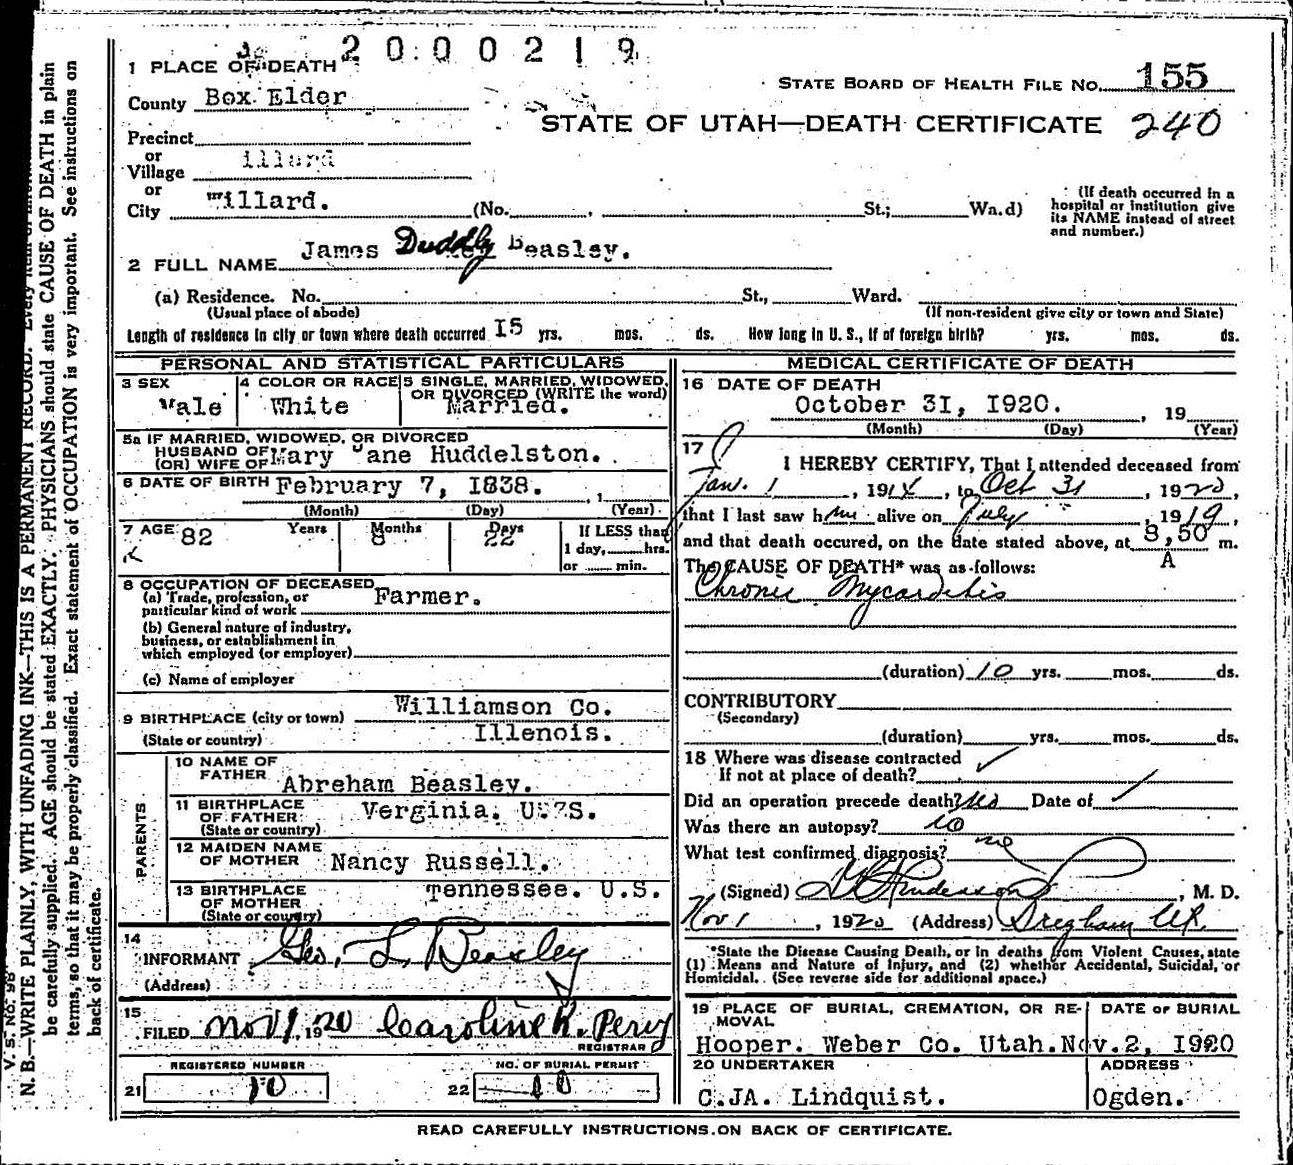 2 0 0 0 2 1 9
1 PLACE OF DEATH
STATE BOARD OF HEALTH FILE No. 155
County Box Elder
STATE OF UTAH—DEATH CERTIFICATE 240
Precinct
or
Village illard
or
City Willard. (No. , St.; Wa.d)
(If death occurred in a
hospital or institution give
its NAME instead of street
and number.)
2 FULL NAME James Duddly Beasley.
(a) Residence. No. St., Ward.
(Usual place of abode) (If non-resident give city or town and State)
Length of residence in city or town where death occurred I5 yrs. mos. ds. How long in U. S., if of foreign birth? yrs. mos. ds.
PERSONAL AND STATISTICAL PARTICULARS
3 SEX Male
4 COLOR OR RACE White
5 SINGLE, MARRIED, WIDOWED,
OR DIVORCED (WRITE the word)
Married.
5a IF MARRIED, WIDOWED, OR DIVORCED
HUSBAND OF Mary Jane Huddelston.
(OR) WIFE OF
6 DATE OF BIRTH February 7, I838. , 1
(Month) (Day) (Year)
7 AGE 82 Years 8 Months 22 Days
If LESS than
1 day, hrs.
or min.
8 OCCUPATION OF DECEASED
(a) Trade, profession, or
particular kind of work Farmer.
(b) General nature of industry,
business, or establishment in
which employed (or employer)
(c) Name of employer
9 BIRTHPLACE (city or town) Williamson Co.
(State or country) Illenois.
PARENTS
10 NAME OF
FATHER Abreham Beasley.
11 BIRTHPLACE
OF FATHER Verginia. U.S.
(State or country)
12 MAIDEN NAME
OF MOTHER Nancy Russell.
13 BIRTHPLACE
OF MOTHER Tennessee. U.S.
(State or country)
14
INFORMANT Geo. L. Beasley
(Address)
15
FILED Nov 1, 1920 Caroline K. Perry
REGISTRAR
REGISTERED NUMBER
21 10
NO. OF BURIAL PERMIT
22 10
MEDICAL CERTIFICATE OF DEATH
16 DATE OF DEATH
October 3I, I920. , 19
(Month) (Day) (Year)
17
I HEREBY CERTIFY, That I attended deceased from
Jan. 1 , 191 , to Oct 31 , 1920,
that I last saw him alive on July , 1919,
and that death occured, on the date stated above, at 8,50 m.
A
The CAUSE OF DEATH* was as follows:
Chronic Mycarditis
(duration) 10 yrs. mos. ds.
CONTRIBUTORY
(Secondary)
(duration) yrs. mos. ds.
18 Where was disease contracted
If not at place of death?
Did an operation precede death? No Date of
Was there an autopsy? no
What test confirmed diagnosis? no
(Signed) , M. D.
Nov 1 , 1920 (Address) Brigham Ut.
*State the Disease Causing Death, or in deaths from Violent Causes, state
(1) Means and Nature of Injury, and (2) whether Accidental, Suicidal, or
Homicidal. (See reverse side for additional space.)
19 PLACE OF BURIAL, CREMATION, OR RE-
MOVAL
DATE OF BURIAL
Hooper. Weber Co. Utah. Nov.2, I920
20 UNDERTAKER ADDRESS
C.JA. Lindquist. Ogden.
READ CAREFULLY INSTRUCTIONS ON BACK OF CERTIFICATE.
V. S. No. 98
N. B.—WRITE PLAINLY, WITH UNFADING INK—THIS IS A PERMANENT RECORD. Every item of
be carefully supplied. AGE should be stated EXACTLY. PHYSICIANS should state CAUSE OF DEATH in plain
terms, so that it may be properly classified. Exact statement of OCCUPATION is very important. See instructions on
back of certificate.